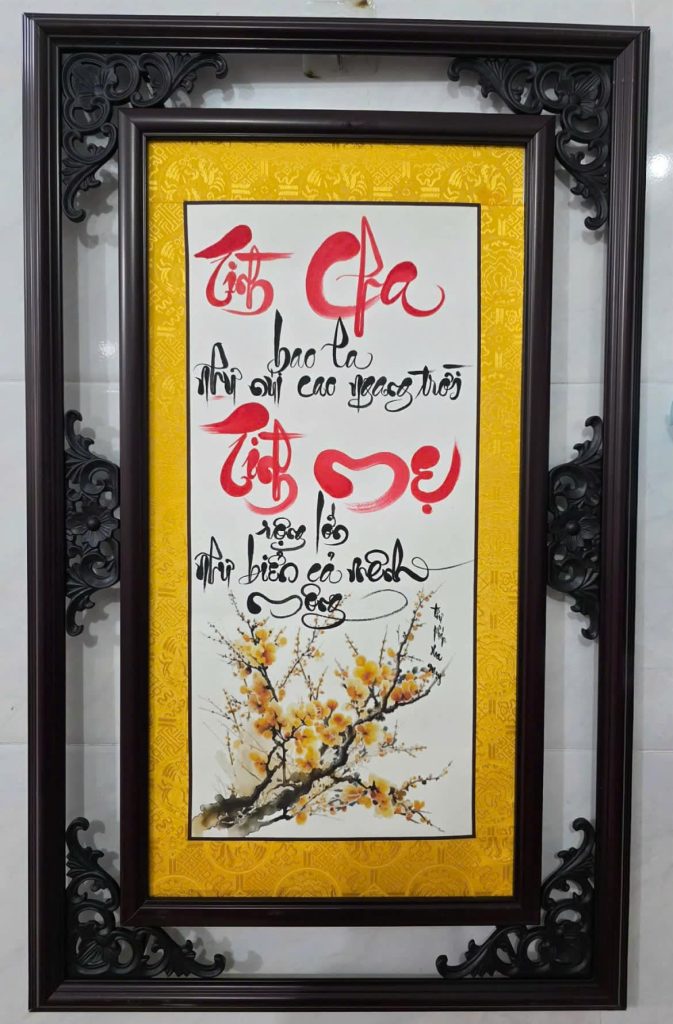 Tình Cha
bao la
như núi cao ngang trời
Tình Mẹ
rộng lớn
như biển cả mênh
mông